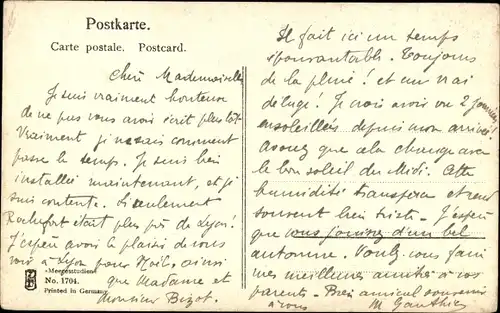 Postkarte.
Carte postale. Postcard.
Chère Mademoiselle,
Je suis vraiment honteuse
de ne pas vous avoir écrit plus tôt
Vraiment je ne sais comment
passe le temps. Je suis bien
installée maintenant, et je
suis contente. Seulement
Rochefort était plus près de Lyon!
J'espère avoir le plaisir de vous
voir à Lyon pour Noël, ainsi
que Madame et
Monsieur Bizot.
«Meeresstudien»
No. 1704.
Printed in Germany
Il fait ici un temps
épouvantable. Toujours
de la pluie! et un vrai
déluge! Je crois avoir vu 2 journées
ensoleillées depuis mon arrivée
Avouez que cela change avec
le bon soleil du Midi. Cette
humidité transperce et rend
souvent bien triste. J'espère
que vous jouissez d'un bel
automne. Voulez-vous faire
mes meilleures amitiés à vos
parents. Bien amical souvenir
à vous M. Gauthier